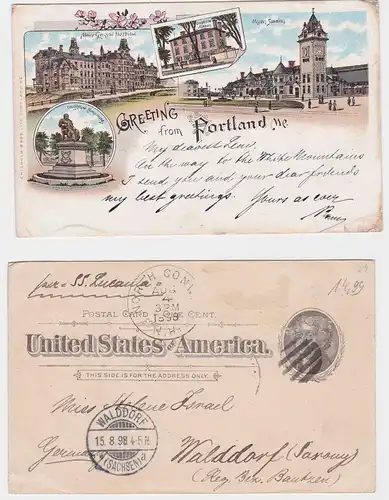 Maine General Hospital
Union Station
GREETING
from Portland Me
My dearest Leni.
On the way to the White Mountains
I send you and your dear friends
my best greetings. Yours as ever
per SS. Lucania
CONN.
AUG
4
3 PM
1898
POSTAL CARD ONE CENT.
United States of America.
THIS SIDE IS FOR THE ADDRESS
14,99
Miss Helene Israel
WALDDORF
15.8.98 4-5 N
(SACHSEN) a
Germany
Walddorf (Saxony)
(Reg. Bez. Bautzen)